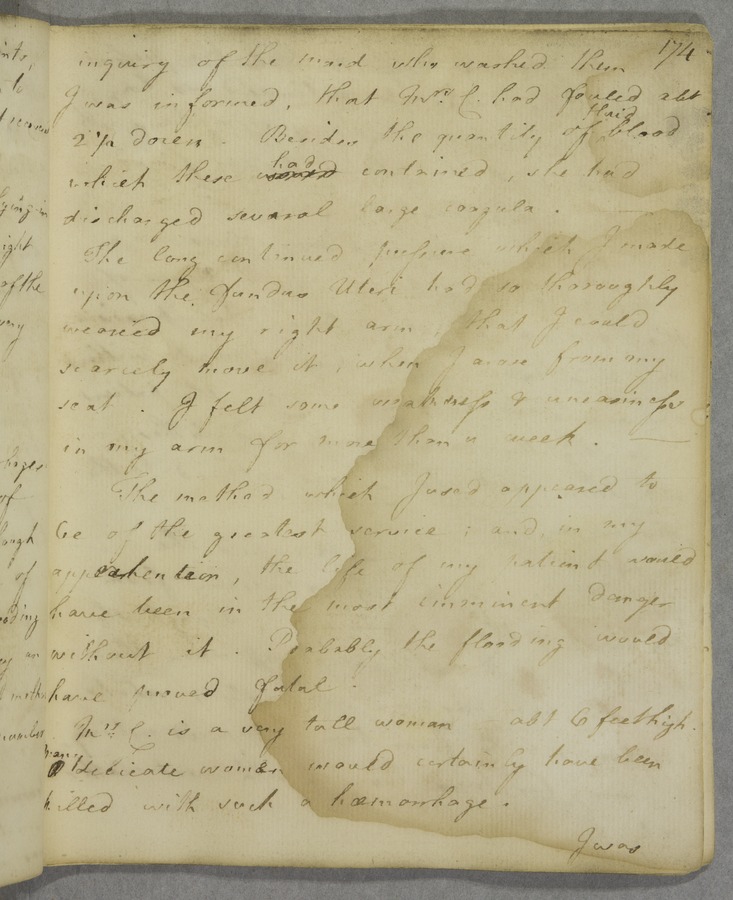 174
inquiry of the maid who washed them
I was informed, that Mrs. C. had fouled abt.
2 1/2 dozen. Besides the quantity of fluid blood
which these had contained, she had
discharged several large coagula.
The long continued pressure which I made
upon the fundus Uteri had so thoroughly
wearied my right arm, that I could
scarcely move it, when I arose from my
seat. I felt some weakness & uneasiness
in my arm for more than a week. —
The method which I used appeared to
be of the greatest service; and, in my
apprehension, the life of my patient would
have been in the most imminent danger
without it. Probably the flooding would
have proved fatal.
Mrs. C. is a very tall woman abt 6 feet high.
Many delicate women would certainly have been
killed with such a hæmorrhage.
I was